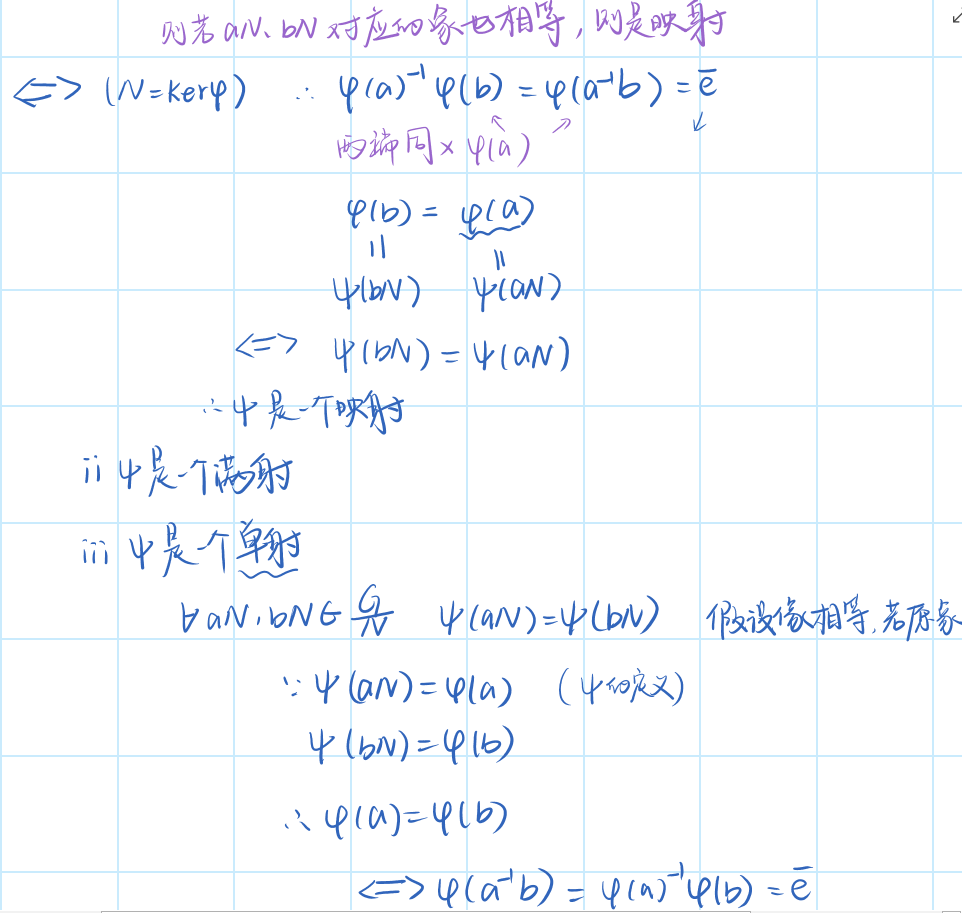 则若aN、bN对应的象也相等，则是映射
<=> (N=kerφ) ∴ φ(a)⁻¹φ(b) = φ(a⁻¹b) = ē
两端同×φ(a)
φ(b) = φ(a)
|| ||
ψ(bN) ψ(aN)
<=> ψ(bN) = ψ(aN)
∴ψ是一个映射
ii ψ是一个满射
iii ψ是一个单射
∀aN,bN∈G/N ψ(aN)=ψ(bN) 假设像相等,若原象
∵ψ(aN)=φ(a) (ψ的定义)
ψ(bN)=φ(b)
∴φ(a)=φ(b)
<=>φ(a⁻¹b) = φ(a)⁻¹φ(b) = ē